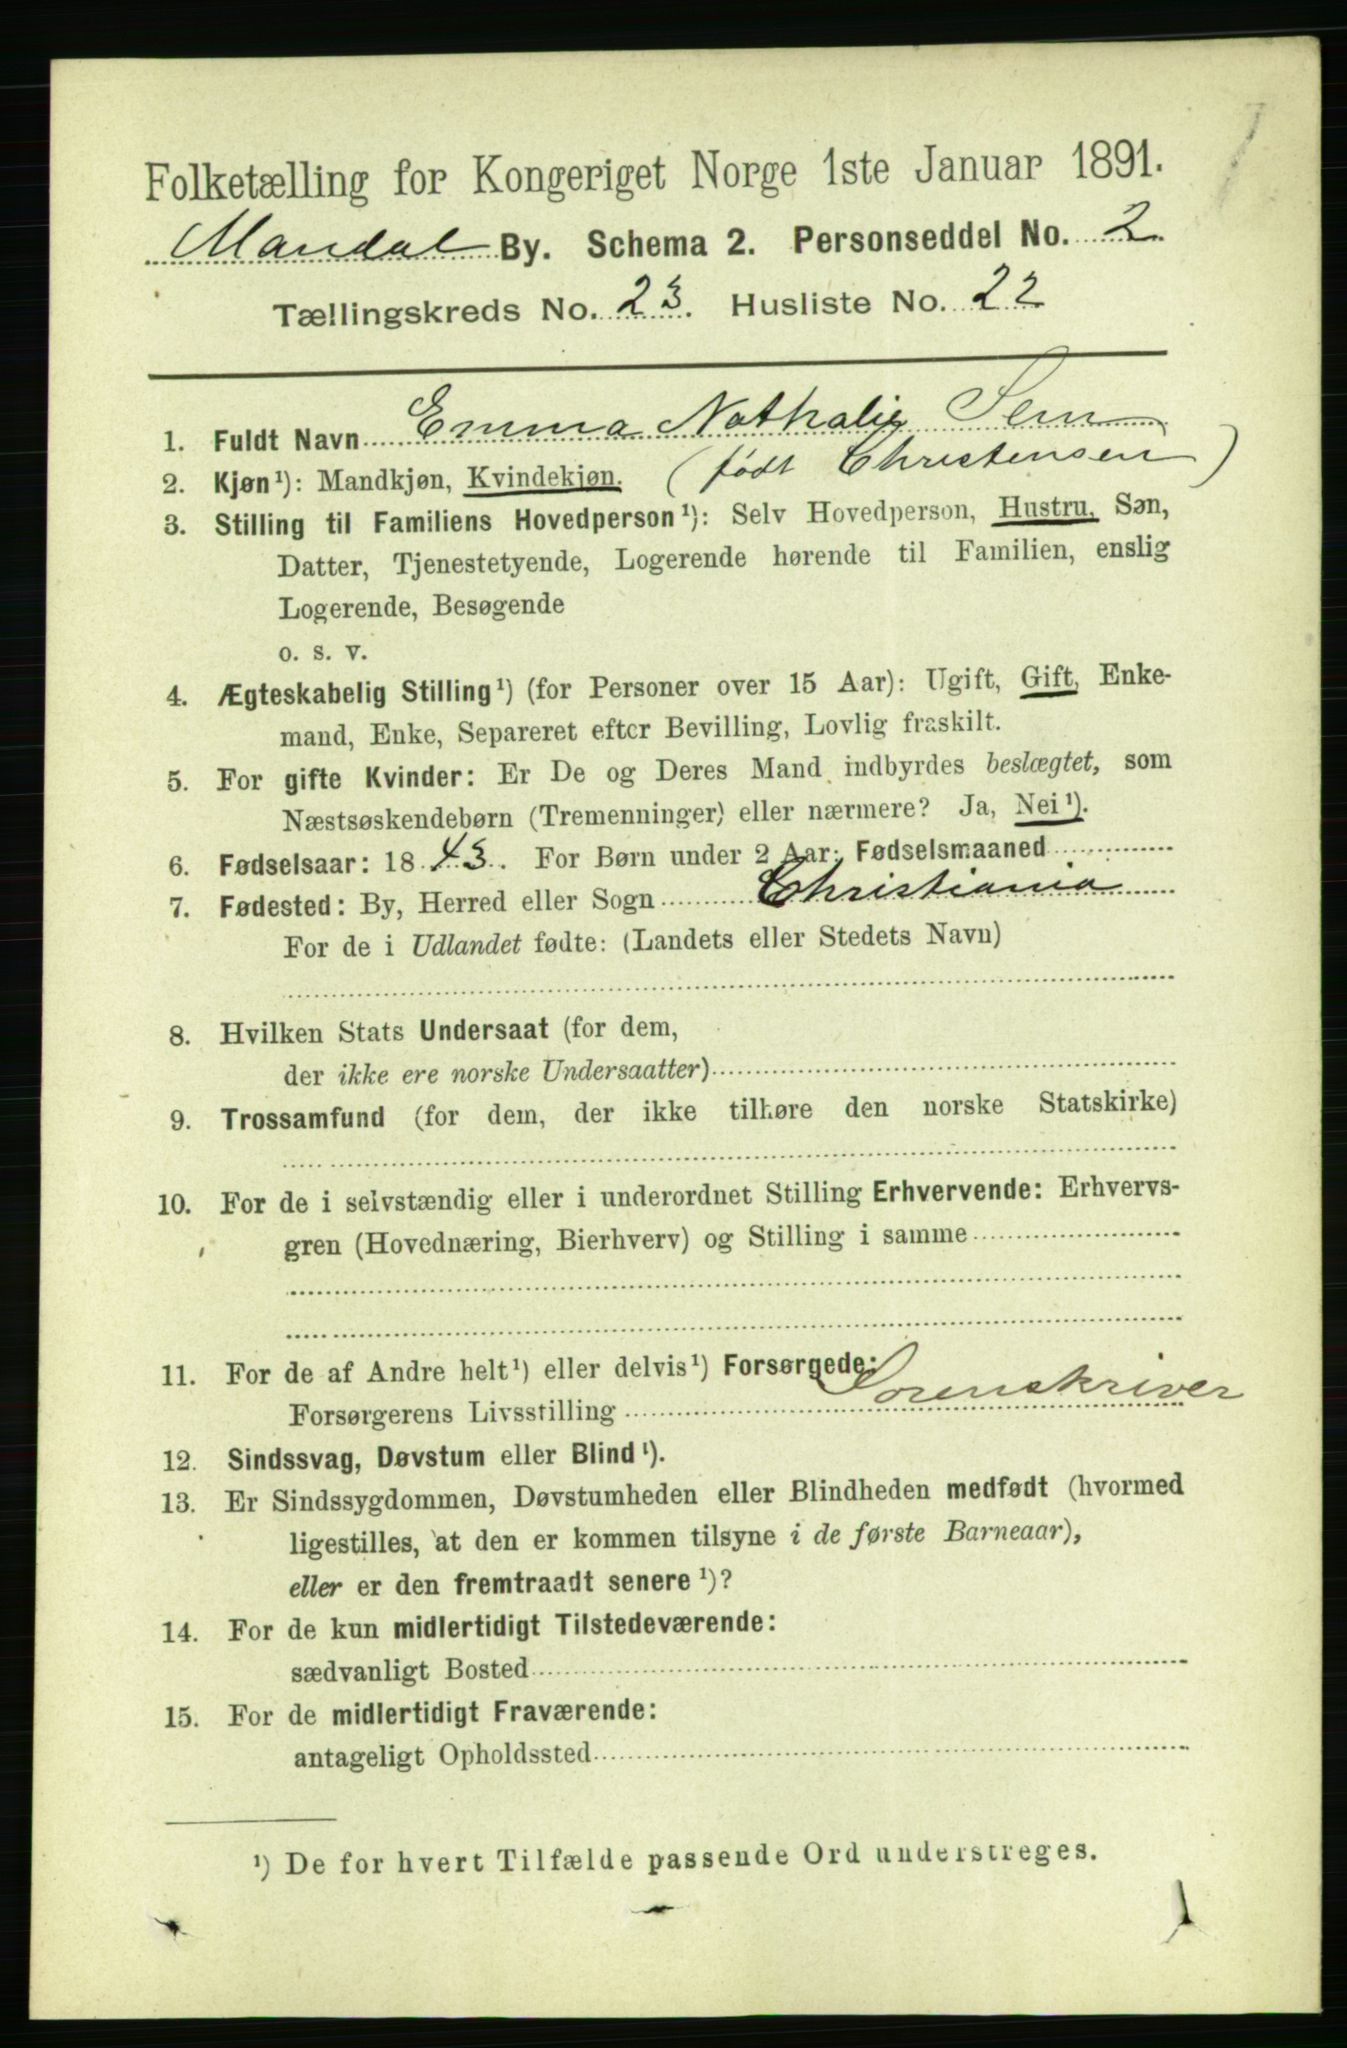 Folketælling for Kongeriget Norge 1ste Januar 1891.
Mandal By. Schema 2. Personseddel No. 2.
Tællingskreds No. 23. Husliste No. 22
1. Fuldt Navn Emma Nathalie Sem
2. Kjøn¹): Mandkjøn, Kvindekjøn. (født Christensen)
3. Stilling til Familiens Hovedperson¹): Selv Hovedperson, Hustru, Søn,
Datter, Tjenestetyende, Logerende hørende til Familien, enslig
Logerende, Besøgende
o. s. v.
4. Ægteskabelig Stilling¹) (for Personer over 15 Aar): Ugift, Gift, Enke-
mand, Enke, Separeret efter Bevilling, Lovlig fraskilt.
5. For gifte Kvinder: Er De og Deres Mand indbyrdes beslægtet, som
Næstsøskendebørn (Tremenninger) eller nærmere? Ja, Nei¹).
6. Fødselsaar: 1843. For Børn under 2 Aar: Fødselsmaaned
7. Fødested: By, Herred eller Sogn Christiania
For de i Udlandet fødte: (Landets eller Stedets Navn)
8. Hvilken Stats Undersaat (for dem,
der ikke ere norske Undersaatter)
9. Trossamfund (for dem, der ikke tilhøre den norske Statskirke)
10. For de i selvstændig eller i underordnet Stilling Erhvervende: Erhvervs-
gren (Hovednæring, Bierhverv) og Stilling i samme
11. For de af Andre helt¹) eller delvis¹) Forsørgede:
Forsørgerens Livsstilling Sorenskriver
12. Sindssvag, Døvstum eller Blind¹).
13. Er Sindssygdommen, Døvstumheden eller Blindheden medfødt (hvormed
ligestilles, at den er kommen tilsyne i de første Barneaar),
eller er den fremtraadt senere¹)?
14. For de kun midlertidigt Tilstedeværende:
sædvanligt Bosted
15. For de midlertidigt Fraværende:
antageligt Opholdssted
¹) De for hvert Tilfælde passende Ord understreges.